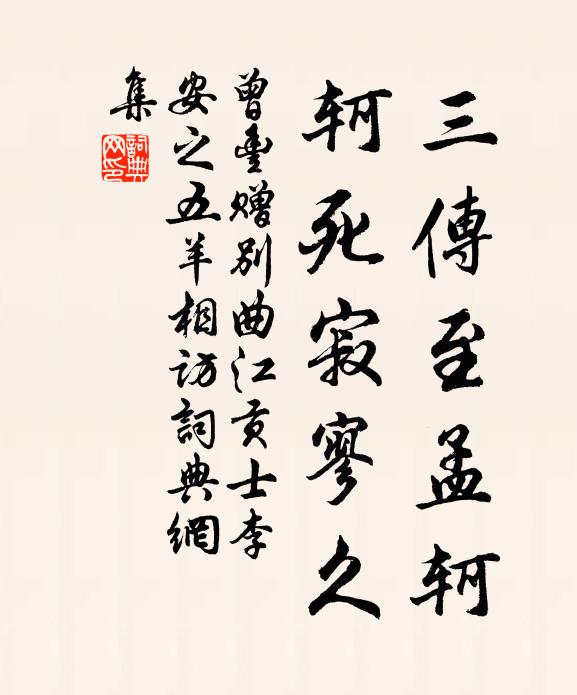 三傳至孟軻
軻死寂寥久
曾豐贈別曲江貢士李
安之五羊相訪詞典網
集
詞典
网印